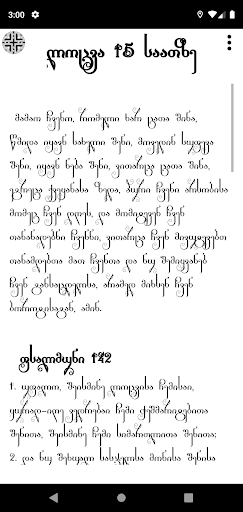 3:00
ლოცვა 15 საათზე
მამაო ჩვენო, რომელი ხარ ცათა შინა,
წმიდა იყავნ სახელი შენი, მოვედინ სუფევა
შენი, იყავნ ნება შენი, ვითარცა ცათა შინა,
ეგრეცა ქვეყანასა ზედა, პური ჩვენი არსობისა
მომეც ჩვენ დღეს, და მომიტევენ ჩვენ
თანანადებნი ჩვენნი, ვითარცა ჩვენ მივუტევებთ
თანამდებთა მათ ჩვენთა და ნუ შემიყვანებ
ჩვენ განსაცდელსა, არამედ მიხსნენ ჩვენ
ბოროტისაგან, ამინ.
ფსალმუნი 142
1. უფალო, შეისმინე ლოცვისა ჩემისაი,
ყურად-იღე ვედრებაი ჩემი ჭეშმარიტებითა
შენითა, შეისმინე ჩემი სიმართლითა შენითა;
2. და ნუ შეხუალ სასჯელსა მონისა შენისა